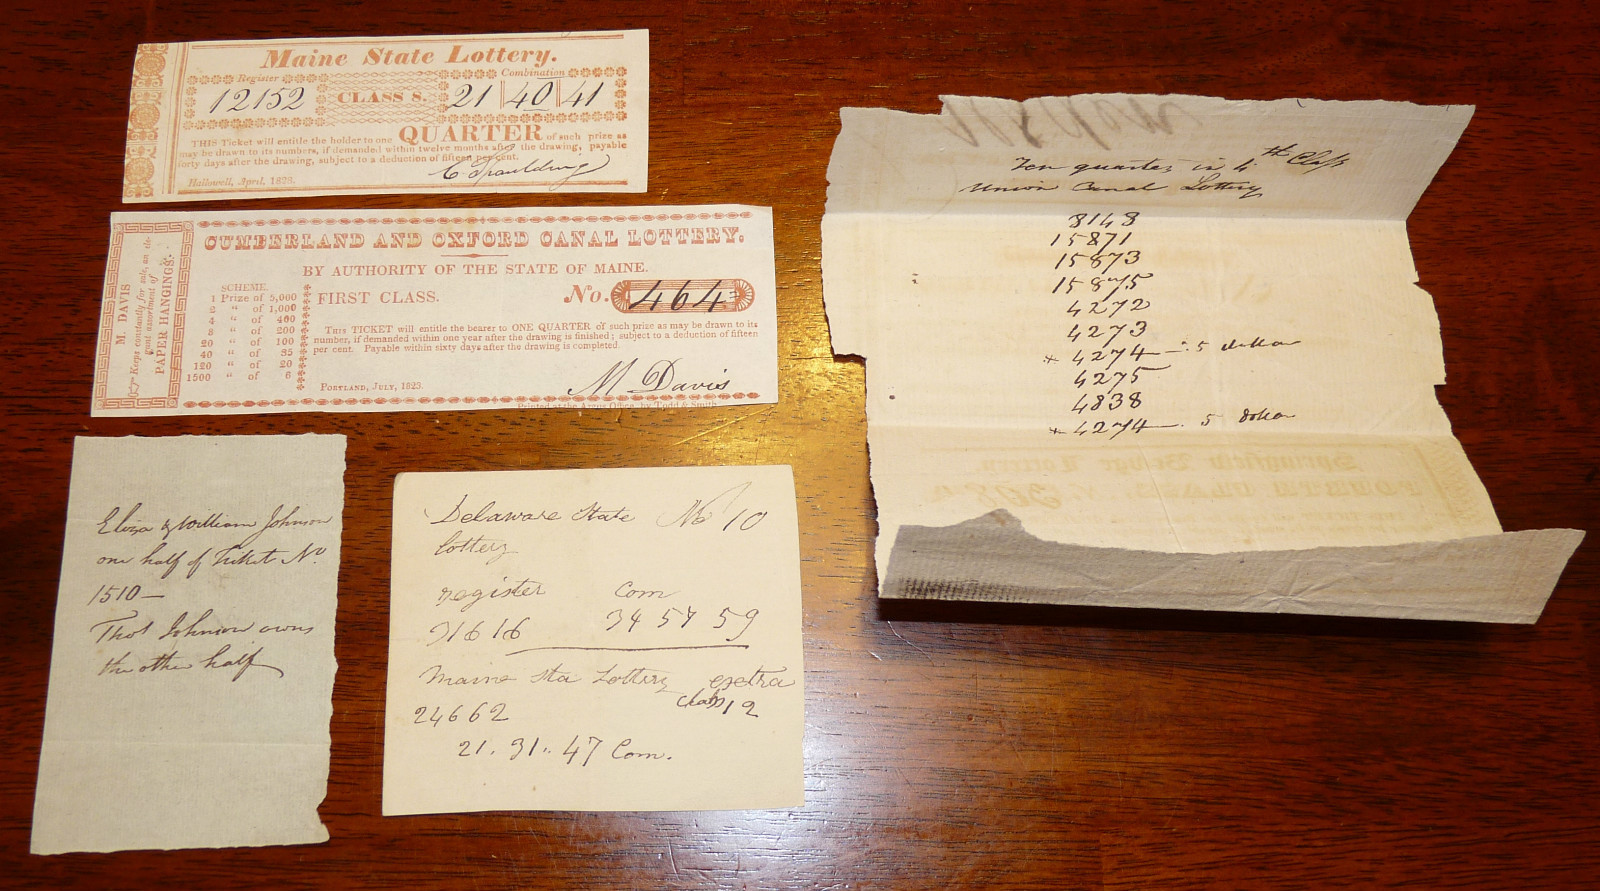 Maine State Lottery.
Register Combination
12152 CLASS 8. 21 40 41
THIS Ticket will entitle the holder to one QUARTER of such prize as
may be drawn to its numbers, if demanded within twelve months after the drawing, payable
forty days after the drawing, subject to a deduction of fifteen per cent.
Hallowell, April, 1828.
C Spaulding
M. DAVIS
Keeps constantly for sale, an ele-
gant assortment of
PAPER HANGINGS.
CUMBERLAND AND OXFORD CANAL LOTTERY.
BY AUTHORITY OF THE STATE OF MAINE.
SCHEME.
1 Prize of 5,000
2 " of 1,000
4 " of 400
8 " of 200
20 " of 100
40 " of 35
120 " of 20
1500 " of 6
FIRST CLASS. No. 464
THIS TICKET will entitle the bearer to ONE QUARTER of such prize as may be drawn to its
number, if demanded within one year after the drawing is finished; subject to a deduction of fifteen
per cent. Payable within sixty days after the drawing is completed.
PORTLAND, JULY, 1823.
M Davis
Printed at the Argus Office, by Todd & Smith
Eliza & William Johnson
one half of Ticket No.
1510—
Thos Johnson owns
the other half
Delaware State No 10
lottery
register Com
31616 34 57 59
Maine Sta Lottery exetra
Class 12
24662
21. 31.. 47 Com.
Ten quarters in 4th Class
Union Canal Lottery
8148
15871
15873
15875
4272
4273
* 4274 — 5 dollar
4275
4838
* 4274 — 5 dollar
Springfield Bridge Lottery.
FOURTH CLASS